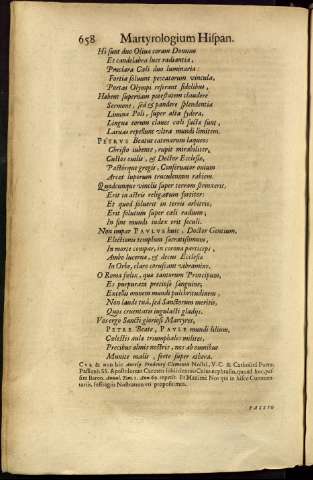 658 Martyrologium Hiſpan.
Hi ſunt duæ Oliuæ coram Domino
Et candelabra luce radiantia,
Præclara Cœli duo luminaria:
Fortia ſoluunt peccatorum vincula,
Portas Olympi reſerant fidelibus,
Habent ſupernam poteſtatem claudere
Sermone, ſed & pandere ſplendentia
Limina Poli, ſuper alta ſydera,
Linguæ eorum claues cœli factæ ſunt,
Laruas repellunt vltra mundi limitem.
PETRVS Beatus catenarum laqueos
Chriſto iubente, rupit mirabiliter,
Cuſtos ouilis, & Doctor Eccleſiæ,
Paſtorque gregis, Conſeruator ouium
Arcet luporum truculentam rabiem.
Quodcumque vinclis ſuper terram ſtrinxerit,
Erit in aſtris religatum fortiter:
Et quod ſoluerit in terris arbitrio,
Erit ſolutum ſuper cœli radium;
In fine mundi iudex erit ſeculi.
Non impar PAVLVS huic, Doctor Gentium,
Electionis templum ſacratiſſimum,
In morte compar, in corona particeps,
Ambo lucernæ, & decus Eccleſiæ
In Orbe, claro coruſcant vibramine.
O Roma fœlix, quæ tantorum Principum,
Es purpurata pretioſo ſanguine,
Excellis omnem mundi pulchritudinem,
Non laude tua, ſed Sanctorum meritis,
Quos cruentatis iugulaſti gladijs.
Vos ergo Sancti glorioſi Martyres,
PETRE Beate, PAVLE mundi lilium,
Cœleſtis aulæ triumphales milites,
Precibus almis noſtris, nos ab omnibus
Munite malis, ferte ſuper æthera.
& non hic Aurelij Prudentij Clementis Noſtri, V. C. & Catholici Poetæ,
Paſſionis SS. Apoſtolorum
Baron. Annal. Tom. 1. Ann. 69. & Maximè Nos qui in hiſce Commen-
tarijs,
PASSIO